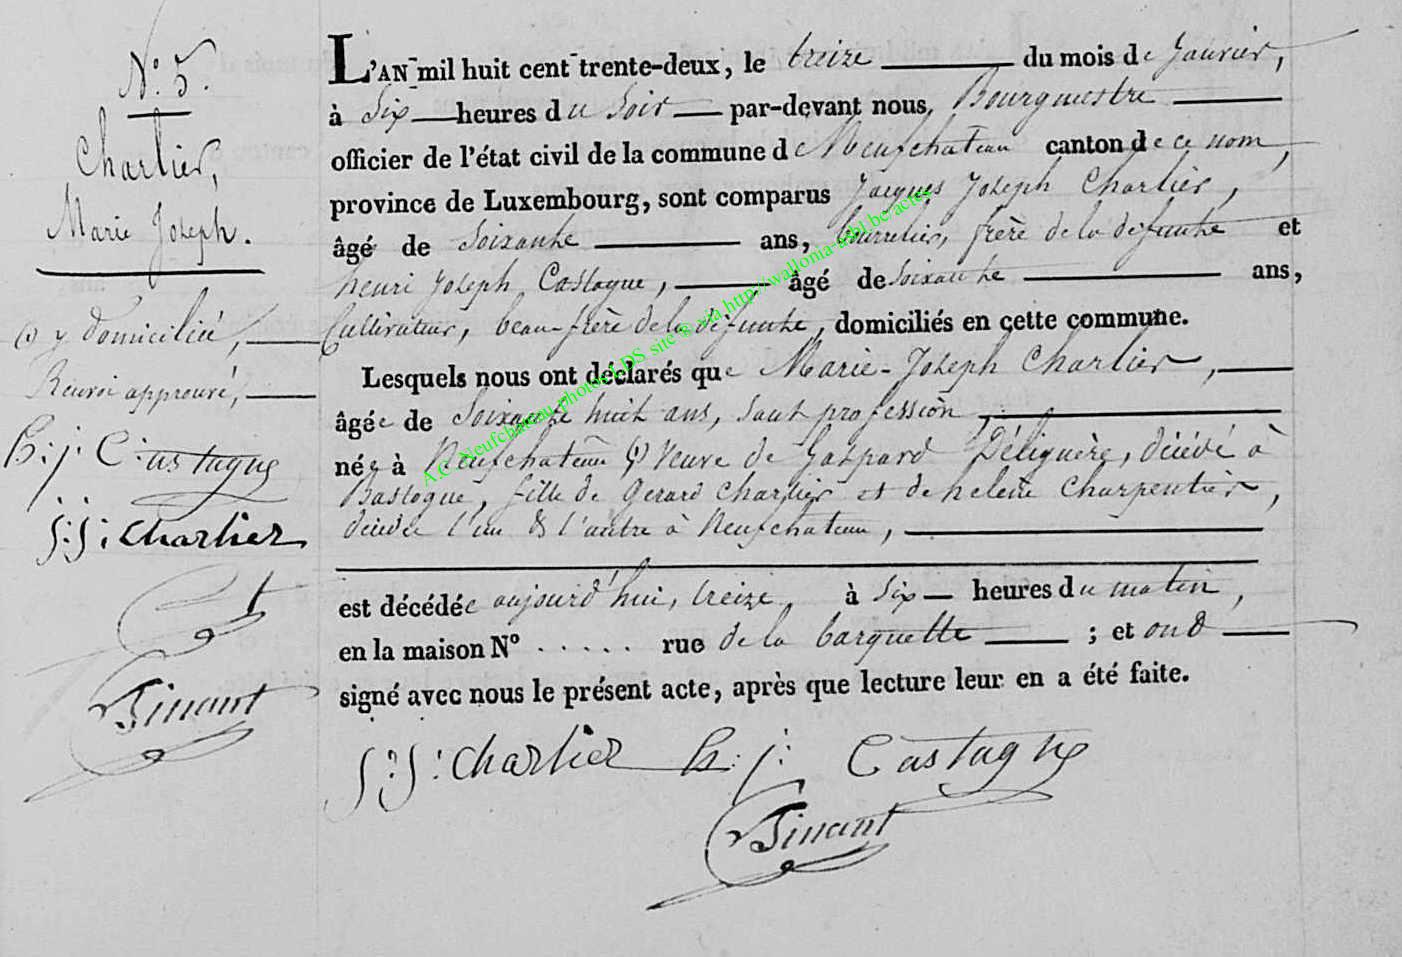 N.° 5.
Charlier,
Marie Joseph.
(1) y domiciliée,
Renvoi approuvé,
h: j: Castagne
J: J: Charlier
Tinant
L'AN mil huit cent trente-deux, le treize du mois de Janvier,
à Six heures du Soir par-devant nous, Bourgmestre
officier de l'état civil de la commune de Neufchateau canton de ce nom,
province de Luxembourg, sont comparus Jacques Joseph Charlier,
âgé de Soixante ans, bourrelier, frère de la défunte et
henri Joseph Castagne, âgé de Soixante ans,
Cultivateur, beau-frère de la défunte, domiciliés en cette commune.
Lesquels nous ont déclarés que Marie-Joseph Charlier,
âgée de Soixante huit ans, Sans profession,
née à Neufchateau (1) Veuve de Gaspard Déliguère, décédé à
Bastogne, fille de Gerard Charlier et de helene Charpentier,
décédés l'un & l'autre à Neufchateau,
est décédée aujourd'hui, treize, à Six heures du matin,
en la maison N° . . . . . rue de la barquette ; et ont
signé avec nous le présent acte, après que lecture leur en a été faite.
J: J: Charlier h: j: Castagne
Tinant
A.C. Neufchateau photos LDS site © via http://wallonia-asbl.be/actes